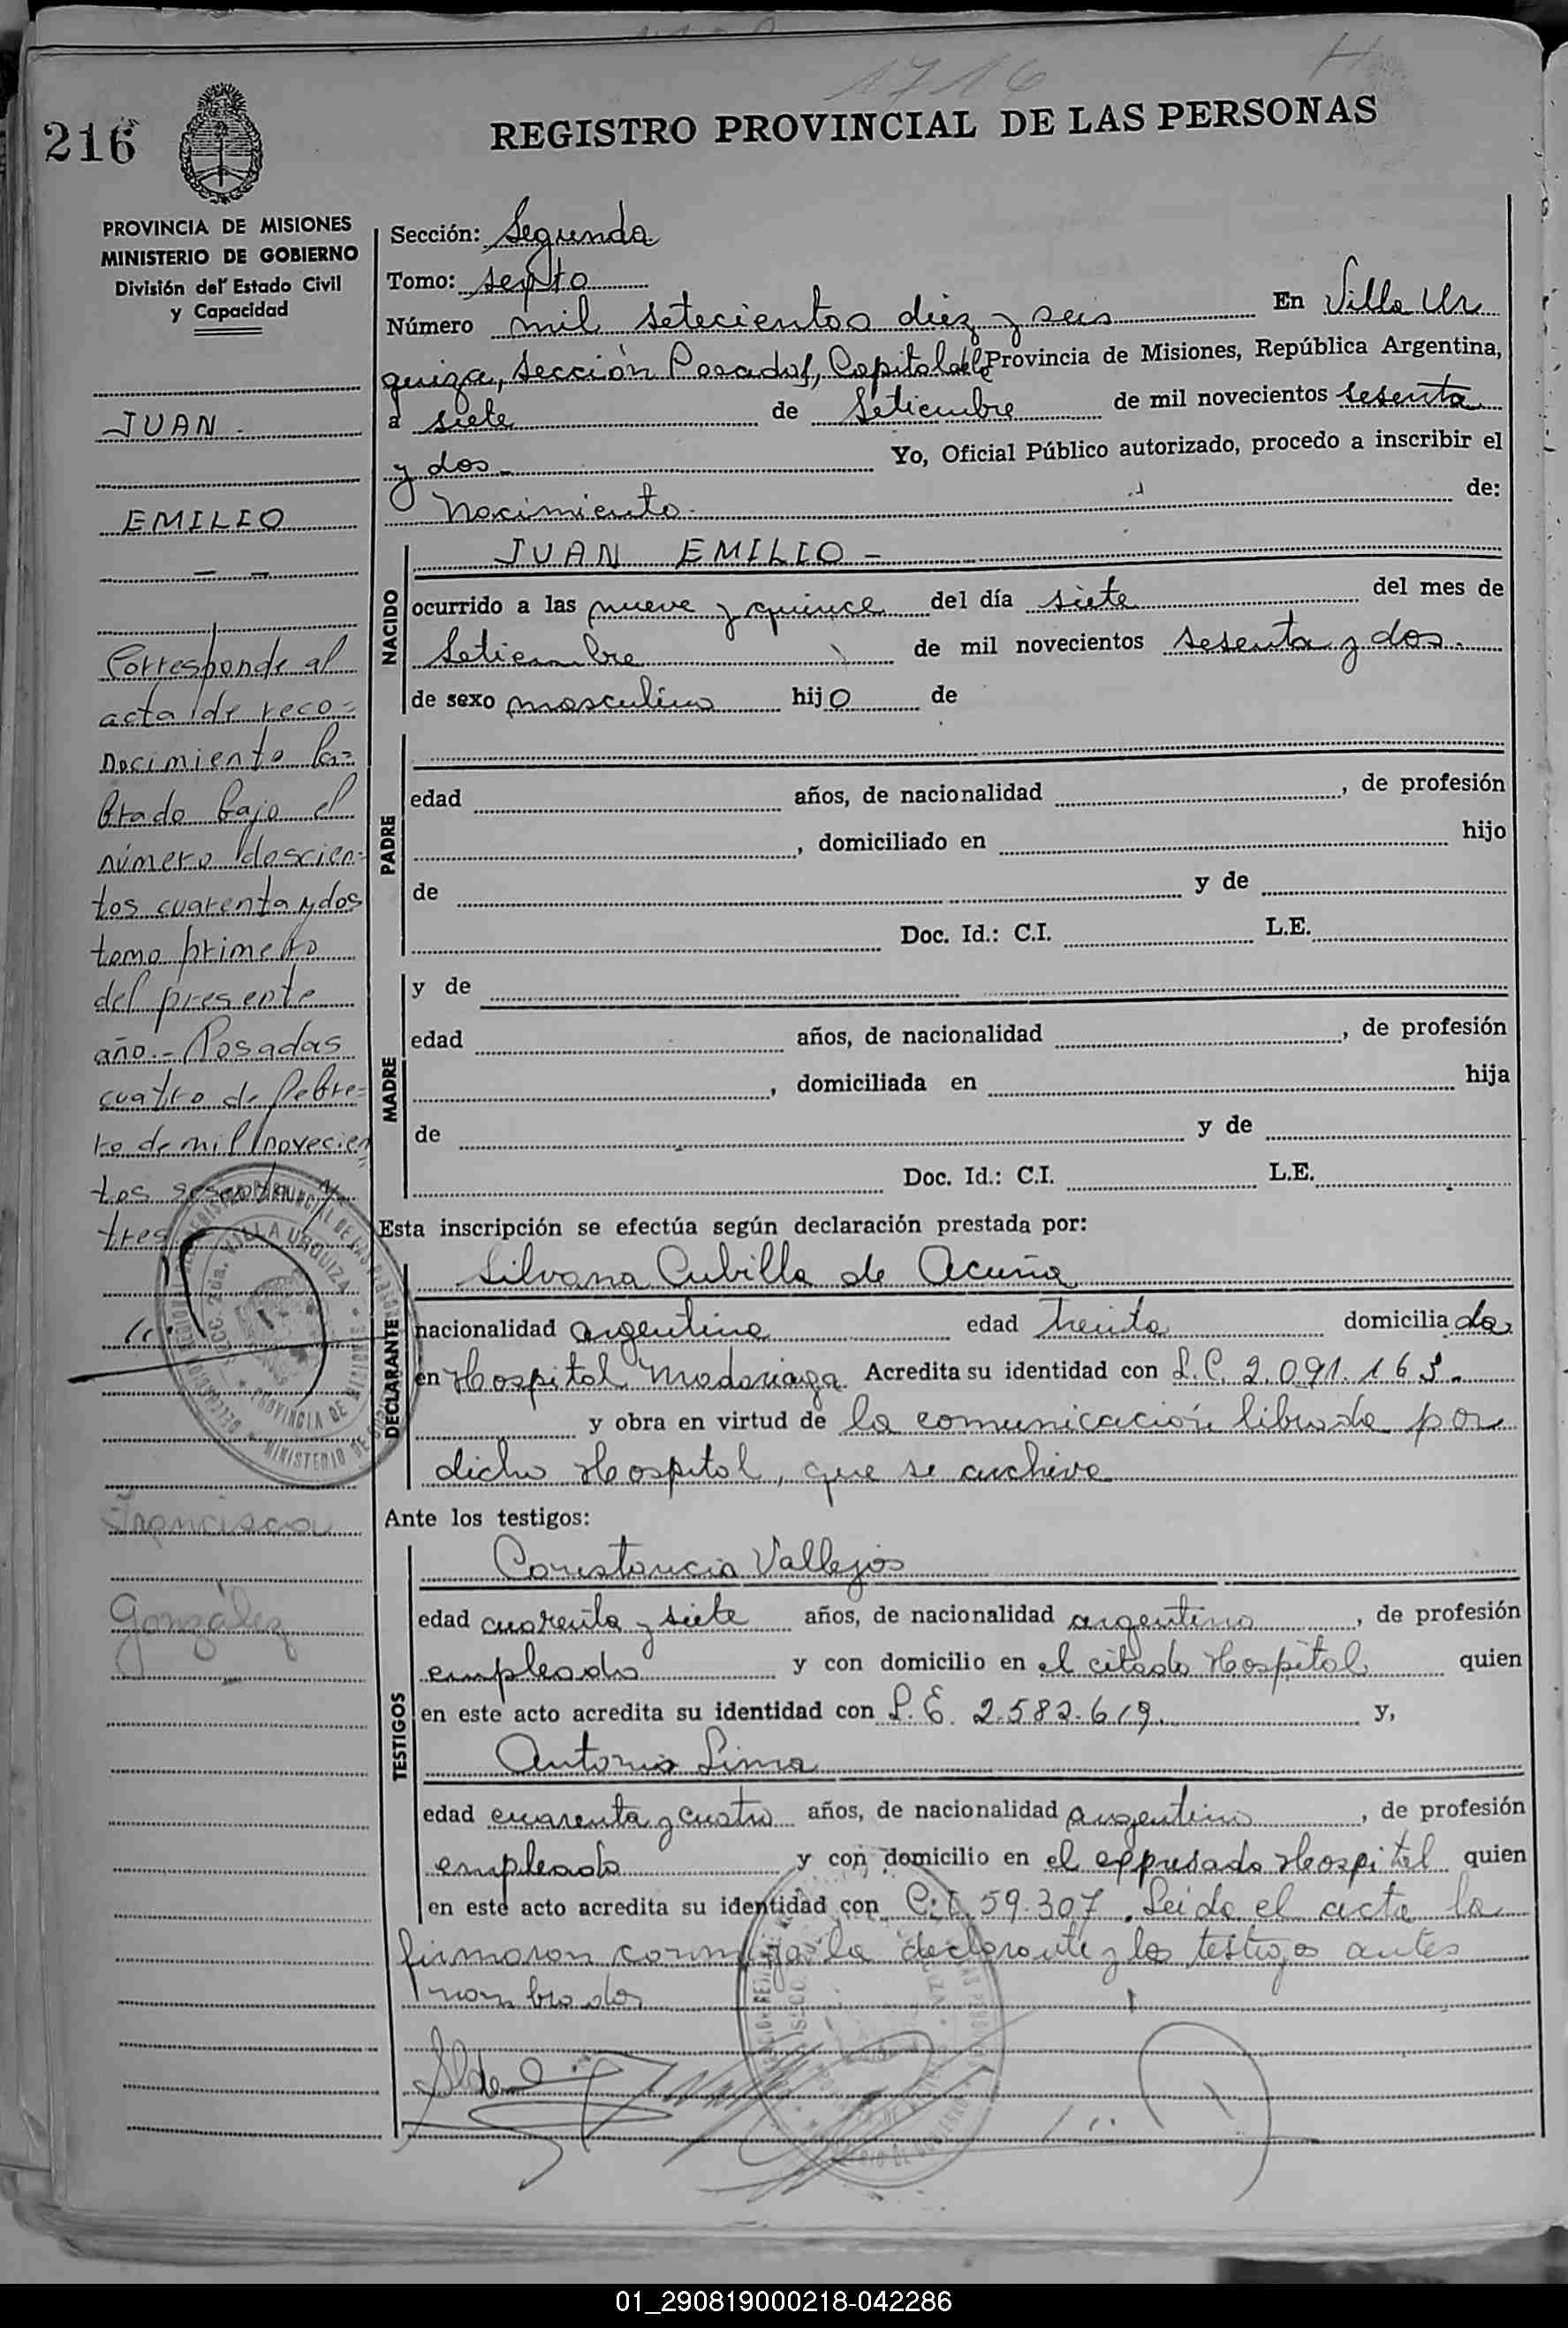 1716
H
216
REGISTRO PROVINCIAL DE LAS PERSONAS
PROVINCIA DE MISIONES
MINISTERIO DE GOBIERNO
División del Estado Civil
y Capacidad
JUAN
EMILIO
Corresponde al
acta de reco=
nocimiento la=
brado bajo el
número doscien=
tos cuarenta y dos
tomo primero
del presente
año.- Posadas
cuatro de febre=
ro de mil novecien=
tos sesenta y
tres
Francisca
González
Sección: Segunda
Tomo: septo
Número mil setecientos diez y seis En Villa Ur
quiza, sección Posadas, Capital de la Provincia de Misiones, República Argentina,
a siete de Setiembre de mil novecientos sesenta
y dos.- Yo, Oficial Público autorizado, procedo a inscribir el
Nacimiento. de:
NACIDO
JUAN EMILIO -
ocurrido a las nueve y quince del día siete del mes de
Setiembre de mil novecientos sesenta y dos.
de sexo masculino hijo de
PADRE
edad años, de nacionalidad , de profesión
, domiciliado en hijo
de y de
Doc. Id.: C.I. L.E.
MADRE
y de
edad años, de nacionalidad , de profesión
, domiciliada en hija
de y de
Doc. Id.: C.I. L.E.
Esta inscripción se efectúa según declaración prestada por:
DECLARANTE
Silvana Cubilla de Acuña
nacionalidad argentina edad treinta domiciliada
en Hospital Madariaga. Acredita su identidad con L.C. 2.091.163.
y obra en virtud de la comunicación librada por
dicho Hospital, que se archiva
Ante los testigos:
TESTIGOS
Constancio Vallejos
edad cuarenta y siete años, de nacionalidad argentino , de profesión
empleado y con domicilio en el citado Hospital quien
en este acto acredita su identidad con L.E. 2.582.619. y,
Antonio Lima
edad cuarenta y cuatro años, de nacionalidad argentino , de profesión
empleado y con domicilio en el expresado Hospital quien
en este acto acredita su identidad con C.I. 59.307. Leida el acta la
firmaron conmigo la declarante y los testigos antes
nombrados
01_290819000218-042286